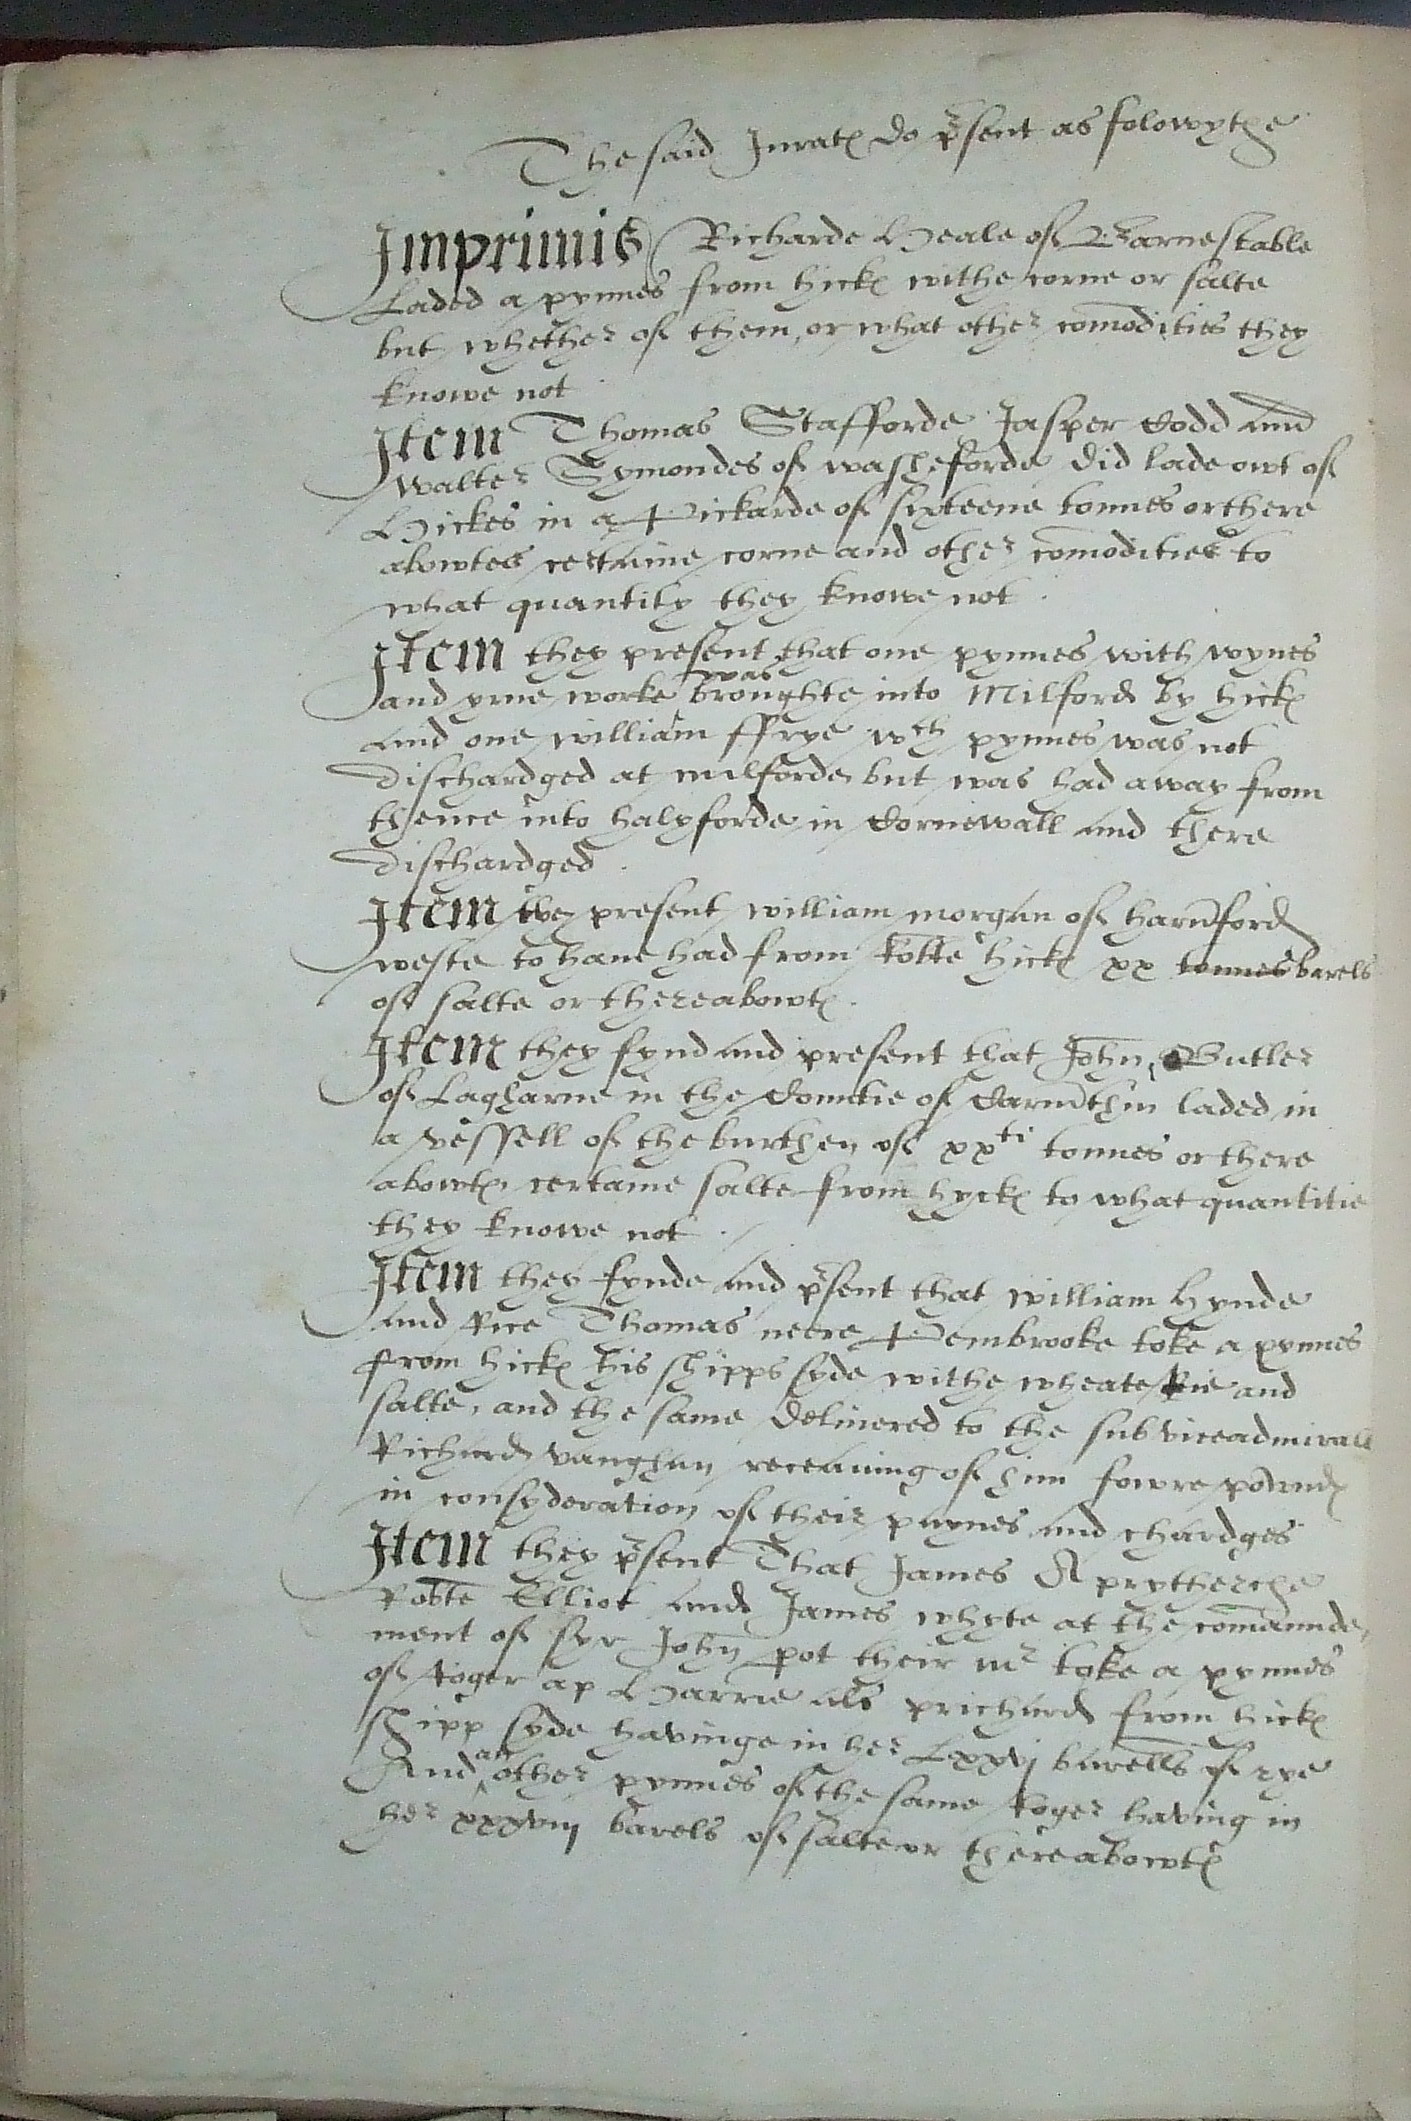 The said Jurates do p͞sent as folowythe
Imprimis Richarde Beale of Barnestable
Laded a pynnes from hickes withe corne or salte
but whether of them, or what other com̄odities they
knowe not
Item Thomas Stafforde Jasper Codd and
walter Symondes of washeforde did lade owt of
Hickes in a Pickarde of sixteene tonnes or there
abowtes certaine corne and other com̄odities to
what quantity they knowe not .
Item they present that one pynnes with wynes
and yrne worke ^was broughte into Milford by hickes
and one william ffrye wch pynnes was not
dischardged at milforde but was had away from
thence into halyforde in Cornewall and there
dischardged .
Item they present william morgan of harūford
weste to haue had from Rob̄te hickes xx tonnes barels
of salte or thereabowtes .
Item they fynd and present that John Butler
of Lagharne in the Countie of Carm̄thin laded in
a vessell of the burthen of xxti tonnes or there
abowtes certaine salte from hyckes to what quantitie
they knowe not .
Item they fynde and p͞sent that william hynde
and Rice Thomas neere Pembrooke toke a pynnes
from hickes his shipps syde withe wheate Rie and
salte, and the same deliuered to the subviceadmirall
Richard vaughan receauing of him fowre powndes
in consyderation of their paynes and chardges
Item they p͞sent That James Aprytherche
Rob̄te Elliot and James whyte at the com̄aunde,
ment of syr John pot their mr toke a pynnes
of Roger ap Harrie als prichard from hickes
shipp syde havinge in her Lxxvj barells of rye
And ^an other pynnes of the same Roger having in
her xxxviij barels of salte or thereabowtes